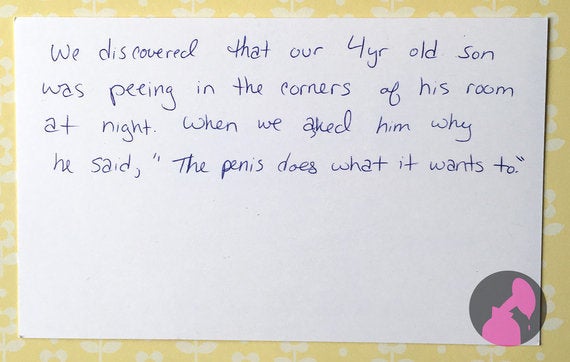 We discovered that our 4yr old son
was peeing in the corners of his room
at night. When we asked him why
he said, "The penis does what it wants to."